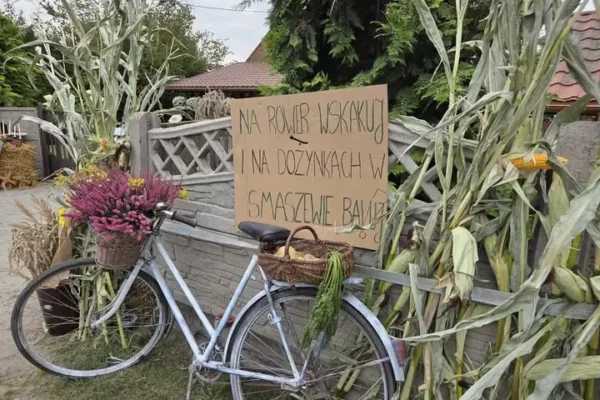 NA ROWER WSKAKUJ
I NA DOŻYNKACH W
SMASZEWIE BALUJ!